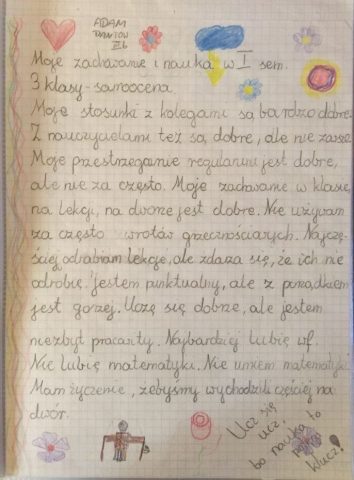 ADAM
III b
Moje zachowanie i nauka w I sem.
3 klasy - samoocena.
Moje stosunki z kolegami są bardzo dobre.
Z nauczycielami też są dobre, ale nie zawsze
Moje przestrzeganie regulaminu jest dobre,
ale nie za często. Moje zachowanie w klasie,
na lekcji, na dworze jest dobre. Nie używam
za często zwrotów grzecznościowych. Najczę-
ściej odrabiam lekcje, ale zdarza się, że ich nie
odrobię. Jestem punktualny, ale z porządkiem
jest gorzej. Uczę się dobrze, ale jestem
niezbyt pracowity. Najbardziej lubię wf.
Nie lubię matematyki. Nie umiem matematyki.
Mam życzenie, żebyśmy wychodzili częściej na
dwór.
Ucz się
ucz, to
bo nauka
klucz!